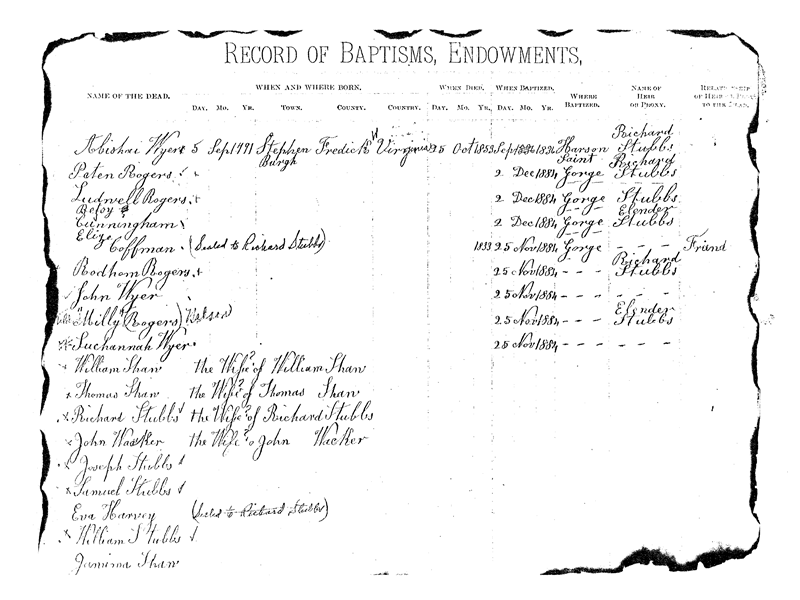 RECORD OF BAPTISMS, ENDOWMENTS,
NAME OF THE DEAD. WHEN AND WHERE BORN. WHEN DIED. WHEN BAPTIZED. WHERE BAPTIZED. NAME OF HEIR OR PROXY. OF HEIR TO THE DEAD.
DAY. MO. YR. TOWN. COUNTY. COUNTRY. DAY. MO. YR. DAY. MO. YR.
Richard
Abishai Wyer 5 Sep Stephen Fredick Virginia 25 Oct 1853 Sep Harson Stubbs
Burgh Saint Richard
Paten Rogers 2 Dec 1884 Gorge Stubbs
Ludwell Rogers 2 Dec 1884 Gorge Stubbs
Betsy Elender
Cunningham 2 Dec 1884 Gorge Stubbs
Eliza
Coffman (Sealed to Richard Stubbs) 1833 25 Nov 1884 Gorge - - - Friend
Richard
Rodham Rogers 25 Nov 1884 - - - Stubbs
John Wyer 25 Nov 1884 - - - - - -
Elender
"Milly" Rogers) 25 Nov 1884 - - - Stubbs
Suchannah Wyer 25 Nov 1884 - - - - - -
William Shaw the Wife? of William Shaw
Thomas Shaw the Wife? of Thomas Shaw
Richard Stubbs the Wife? of Richard Stubbs
John Wacker the Wife? o John Wacker
Joseph Stubbs
Samuel Stubbs
Eva Harvey (Sealed to Richard Stubbs)
William Stubbs
Jamima Shaw